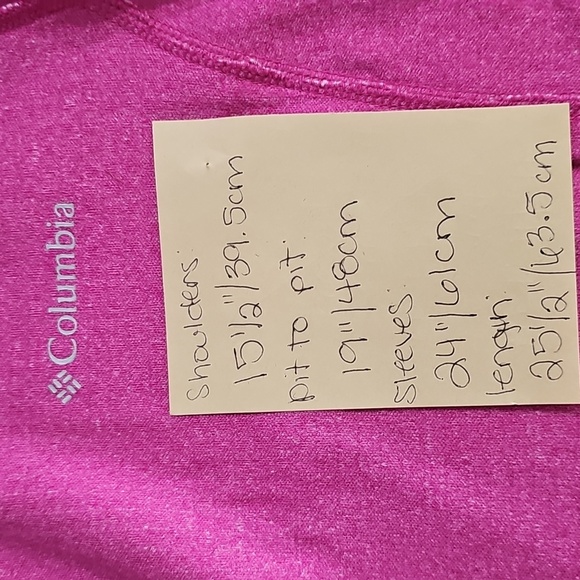 Columbia
Shoulders:
15 1/2"/39.5cm
pit to pit:
19"/48cm
Sleeves:
24"/61cm
length:
25 1/2"/63.5cm